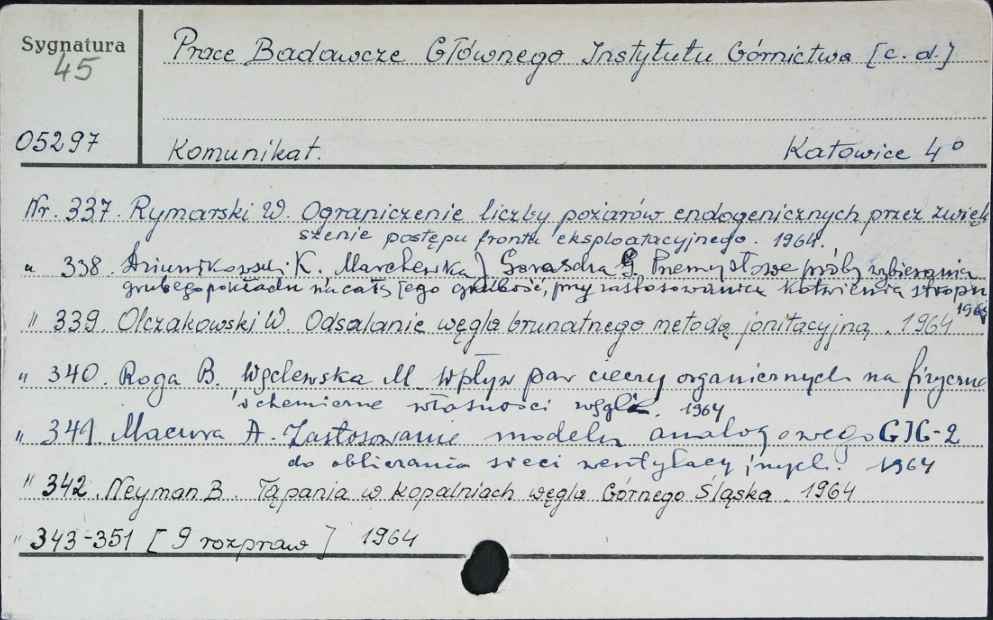 Sygnatura
45
Prace Badawcze Głównego Instytutu Górnictwa [c.d.]
05297
Komunikat. Katowice 4°
Nr. 337. Rymarski W. Ograniczenie liczby pożarów endogenicznych przez zwięk
szenie postępu frontu eksploatacyjnego. 1964.
" 338. K. Marchewka J Przemysłowe próby wybierania
grubego pokładu na całą jego grubość, przy zastosowaniu kotwienia stropu
1964
" 339. Olczakowski W Odsalanie węgla brunatnego metodą jonitacyjną. 1964
" 340. Roga B. Węclewska M. Wpływ par cieczy organicznych na fizyczne
i chemiczne własności węgla. 1964
" 341. Macura A. Zastosowanie modelu analogowego GIG-2
do obliczania sieci wentylacyjnych. 1964
" 342. Neyman B. Tąpania w kopalniach węgla Górnego Śląska. 1964
" 343-351 [9 rozpraw] 1964